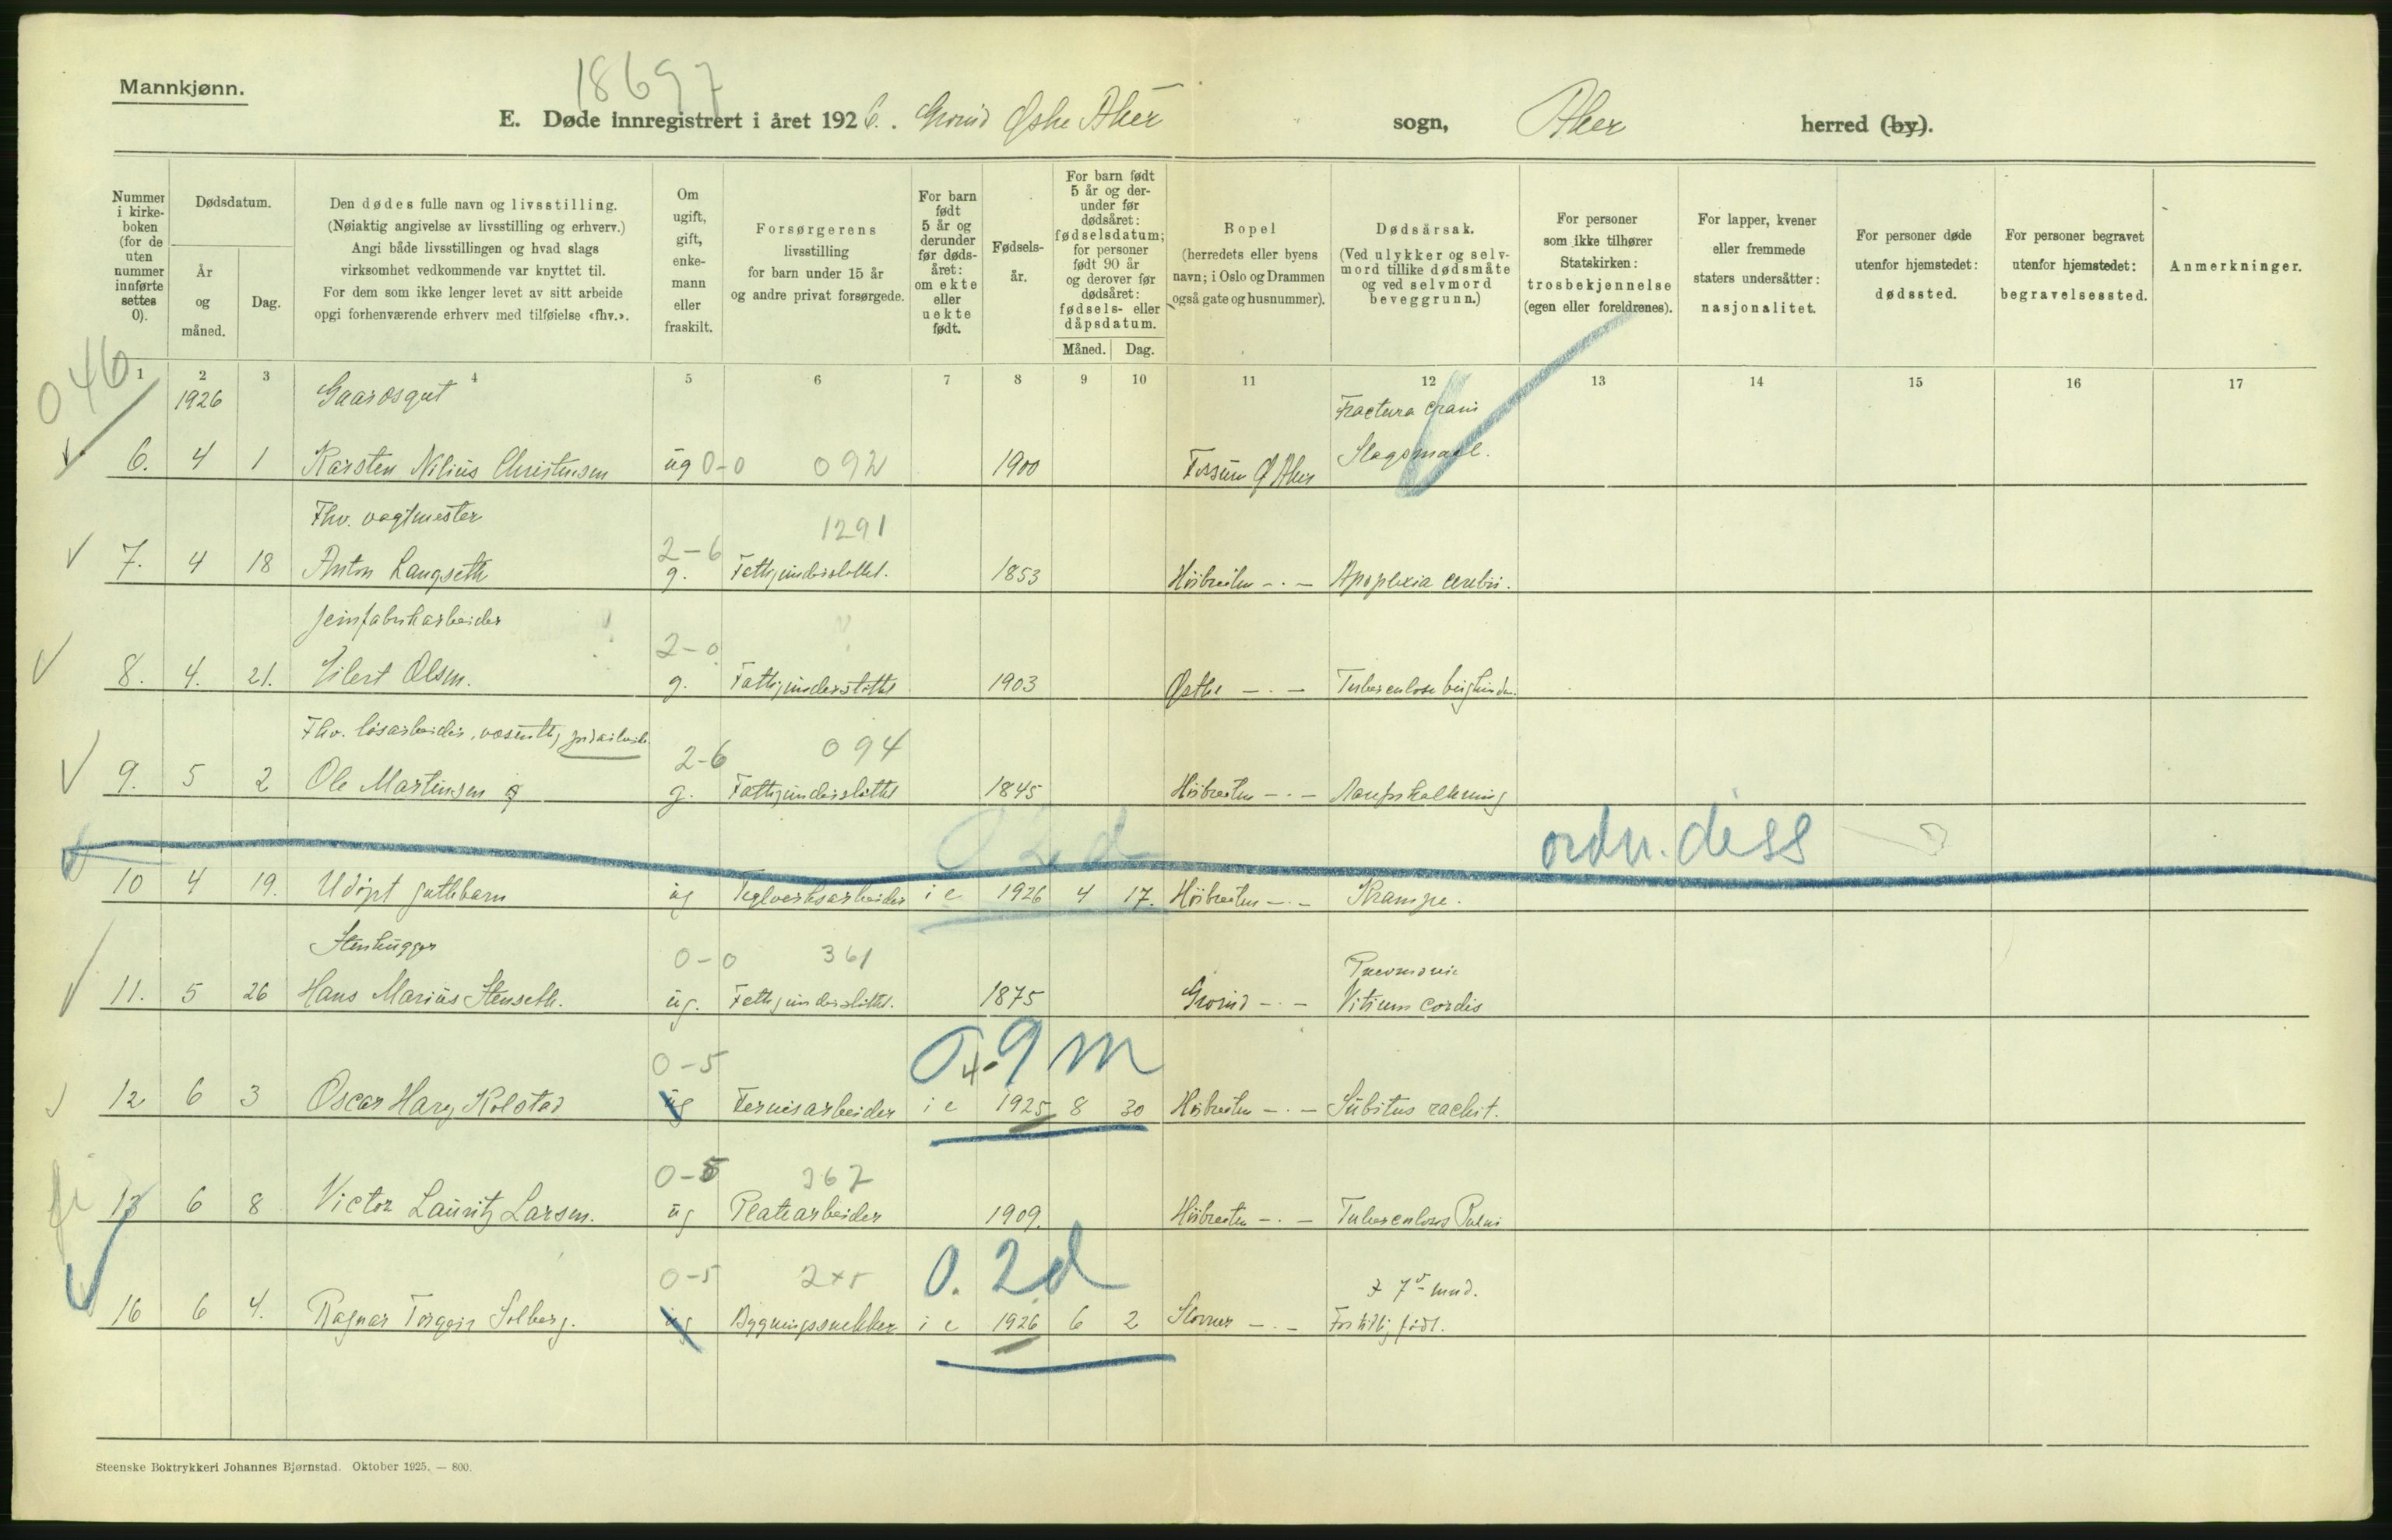 18697
Mannkjønn.
E. Døde innregistrert i året 1926. Grorud Østre Aker sogn, Aker herred (by).
Nummer i kirkeboken (for de uten nummer innførte settes 0).
Dødsdatum.
År og måned.
Dag.
Den dødes fulle navn og livsstilling.
(Nøiaktig angivelse av livsstilling og erhverv.)
Angi både livsstillingen og hvad slags
virksomhet vedkommende var knyttet til.
For dem som ikke lenger levet av sitt arbeide
opgi forhenværende erhverv med tilføielse «fhv.».
Om ugift, gift, enkemann eller fraskilt.
Forsørgerens
livsstilling
for barn under 15 år
og andre privat forsørgede.
For barn født 5 år og derunder før dødsåret: om ekte eller uekte født.
Fødselsår.
For barn født 5 år og derunder før dødsåret: fødselsdatum; for personer født 90 år og derover før dødsåret: fødsels- eller dåpsdatum.
Måned. Dag.
Bopel
(herredets eller byens
navn; i Oslo og Drammen
også gate og husnummer).
Dødsårsak.
(Ved ulykker og selvmord tillike dødsmåte og ved selvmord beveggrunn.)
For personer
som ikke tilhører
Statskirken:
trosbekjennelse
(egen eller foreldrenes).
For lapper, kvener
eller fremmede
staters undersåtter:
nasjonalitet.
For personer døde
utenfor hjemstedet:
dødssted.
For personer begravet
utenfor hjemstedet:
begravelsessted.
Anmerkninger.
1 2 3 4 5 6 7 8 9 10 11 12 13 14 15 16 17
046
1926 Gaardsgut Fractura crani
6. 4 1 Karsten Nilius Christensen ug 0-0 092 1900 Fossum Ø Aker Slagsmaal.
Fhv. vagtmester 1291
2-6
7. 4 18 Anton Langseth g. Fattigunderstøttet. 1853 Høibraaten -.- Apoplexia cerebri.
2-0
8. 4. 21. Eilert Olsen. g. Fattigunderstøttet 1903 Østre -.- Tuberculose
Fhv. løsarbeider, væsentlig
2-6 094
9. 5 2 Ole Martinsen g. Fattigunderstøttet 1845 Høibraaten -.-
0 2 d ordn. diss
10 4 19. Udøpt guttebarn ug Teglverksarbeider i e 1926 4 17. Høibraaten -.- Krampe.
Stenhugger 0-0 361 Pneumonie
11. 5 26 Hans Marius Stenseth. ug. Fattigunderstøttet. 1875 Grorud -.- Vitium cordis
0-5 0. 9 m
12 6 3 Oscar Harry Kolstad ug Fernisarbeider i e 1925 8 30 Høibraaten -.- Subitus rachit.
0-5 367
13 6 8 Victor Lauritz Larsen. ug Platearbeider 1909. Høibraaten -.- Tuberculosis Pulm
0-5 0. 2 d
16 6 4. Ragnar Torgeir Solberg. ug Bygningssnekker i e 1926 6 2 Stovner -.- Fortidlig født.
Steenske Boktrykkeri Johannes Bjørnstad. Oktober 1925. — 800.